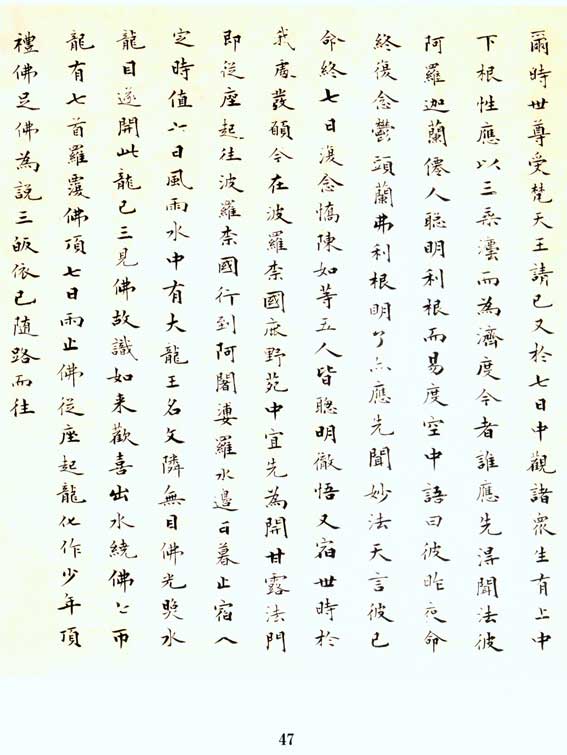 爾時世尊受梵天王請已又於七日中觀諸眾生有上中
下根性應以三乘灋而為濟度今者誰應先得聞法彼
阿羅迦蘭僊人聡明利根而易度空中語曰彼昨夜命
終復念鬱頭蘭弗利根明了亦應先聞妙法天言彼已
命終七日復念憍陳如等五人皆聦明徹悟又宿世時於
我處發願今在波羅柰國庶野苑中宜先為開甘露法門
即從座起往波羅柰國行到阿闍婆羅水邊日暮止宿入
定時值七日風雨水中有大龍王名文隣無目佛光照水
龍目遂開此龍已三見佛故識如来歡喜出水繞佛七帀
龍有七首羅覆佛頂七日雨止佛從座起龍化作少年頂
禮佛足佛為説三皈依已随路而往
47